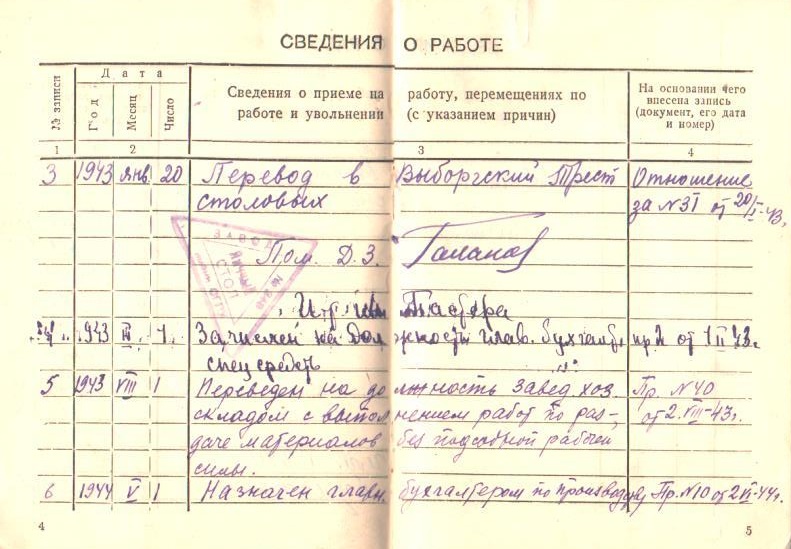 СВЕДЕНИЯ О РАБОТЕ
№ записи
Дата
Год
Месяц
Число
Сведения о приеме на работу, перемещениях по
работе и увольнении (с указанием причин)
На основании чего
внесена запись
(документ, его дата
и номер)
1 2 3 4
3 1943 янв 20 Перевод в Выборгский Трест Отношение
столовых за №31 от 20/I-43.
ЗАВОД
СТОЛ
Пом. Д. З.
4. 1943 1. Зачислен на должность глав. бухгалт. от 1 43г.
спец средств
5 1943 VIII 1 Переведен на должность завед. хоз. Пр. №40
складом с выполнением работ по раз- от 2.VIII-43г.
даче материалов без подсобной рабочей
силы.
6 1944 V 1 Назначен главн. бухгалтером по производству Пр. №10 от 44г.
4 5